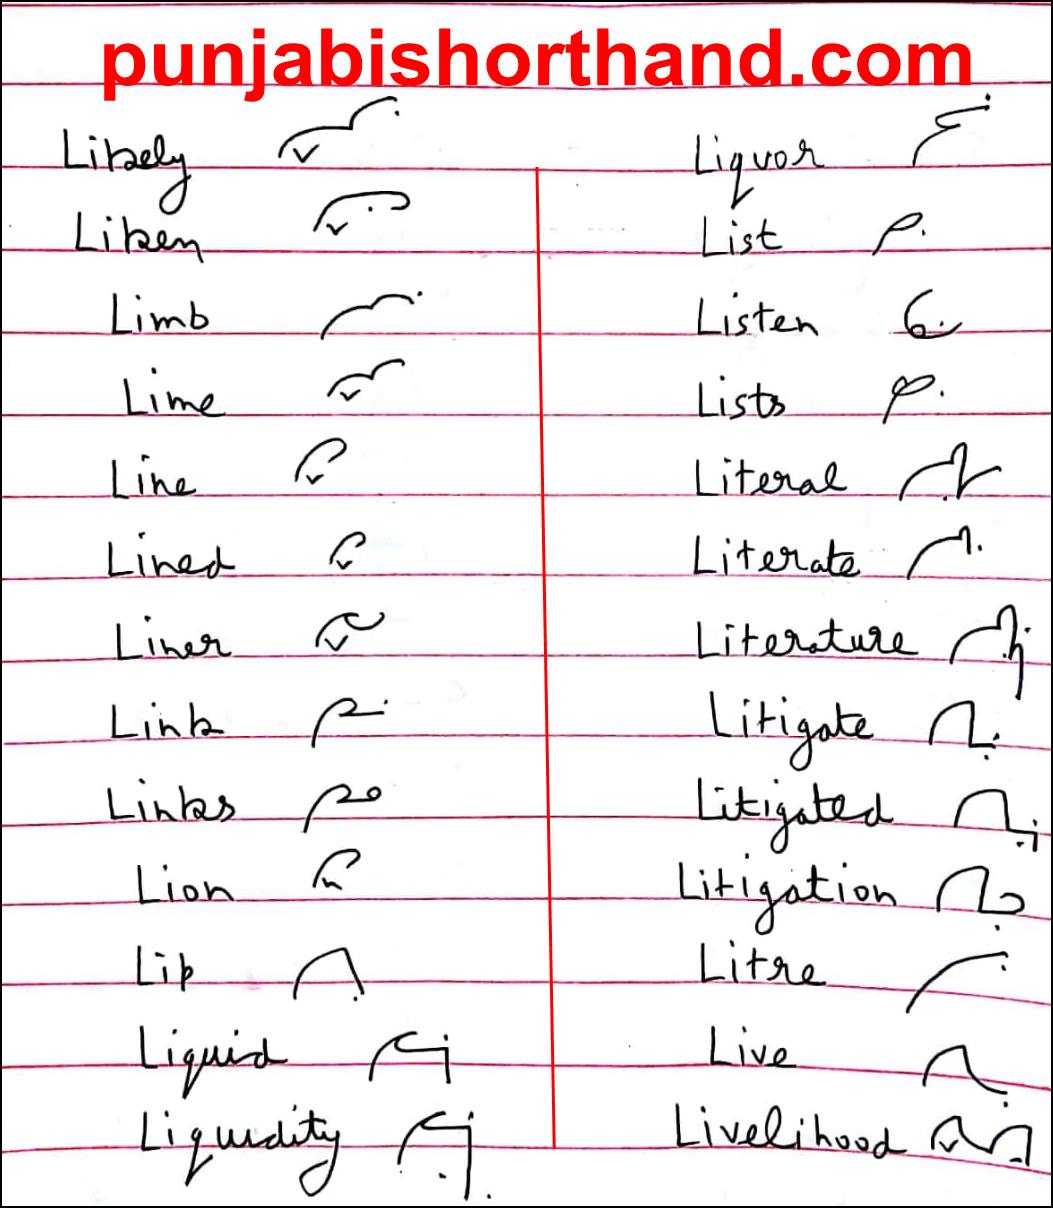 punjabishorthand.com
Likely
Liken
Limb
Lime
Line
Lined
Liner
Link
Links
Lion
Lip
Liquid
Liquidity
Liquor
List
Listen
Lists
Literal
Literate
Literature
Litigate
Litigated
Litigation
Litre
Live
Livelihood